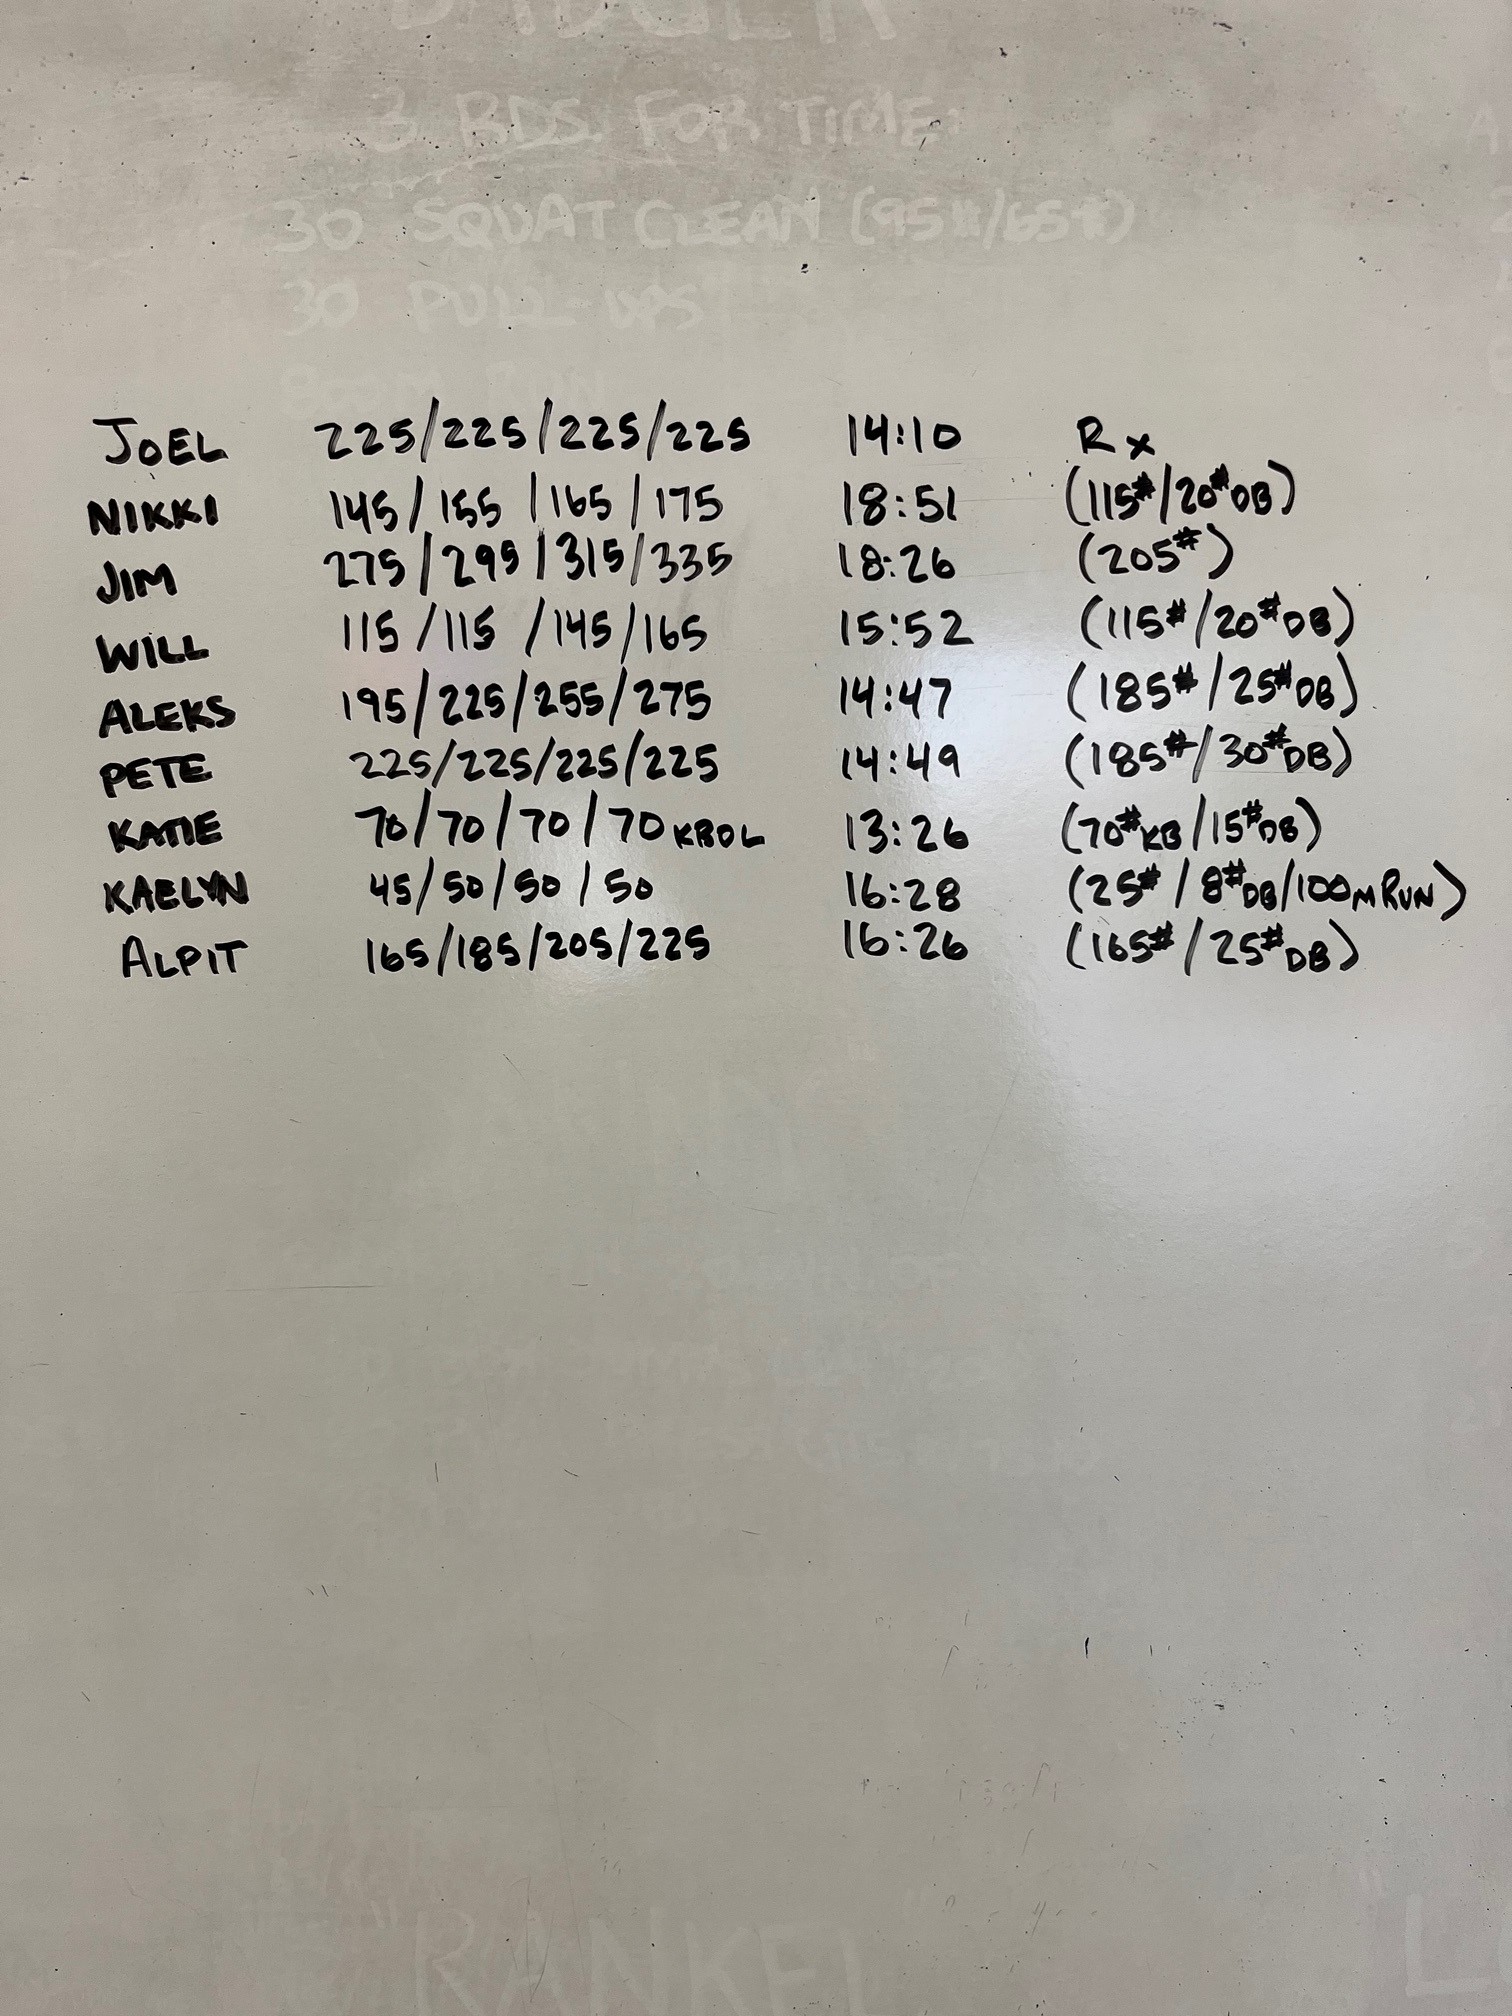 BADGER
3 RDS. FOR TIME:
30 SQUAT CLEAN (95#/65#)
30 PULL-UPS
800M RUN
JOEL 225/225/225/225 14:10 Rx
NIKKI 145/155/165/175 18:51 (115#/20#DB)
JIM 275/295/315/335 18:26 (205#)
WILL 115/115/145/165 15:52 (115#/20#DB)
ALEKS 195/225/255/275 14:47 (185#/25#DB)
PETE 225/225/225/225 14:49 (185#/30#DB)
KATIE 70/70/70/70 KBDL 13:26 (70#KB/15#DB)
KAELYN 45/50/50/50 16:28 (25#/8#DB/100M RUN)
ALPIT 165/185/205/225 16:26 (165#/25#DB)
"RANKEL"